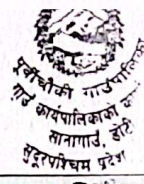 पूर्वीचौकी गाउँपालिका
गाउँ कार्यपालिकाको
सानागाउँ, डोटी
सुदूरपश्चिम प्रदेश